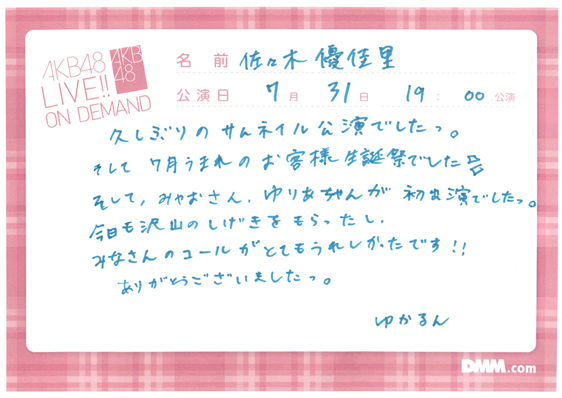 AKB48
LIVE!!
ON DEMAND
AKB
48
名前 佐々木優佳里
公演日 7月31日 19:00公演
久しぶりのサムネイル公演でしたっ。
そして7月うまれのお客様生誕祭でした
そして、みゃおさん、ゆりあちゃんが初出演でしたっ。
今日も沢山のしげきをもらったし、
みなさんのコールがとてもうれしかったです!!
ありがとうございましたっ。
ゆかるん
DMM.com